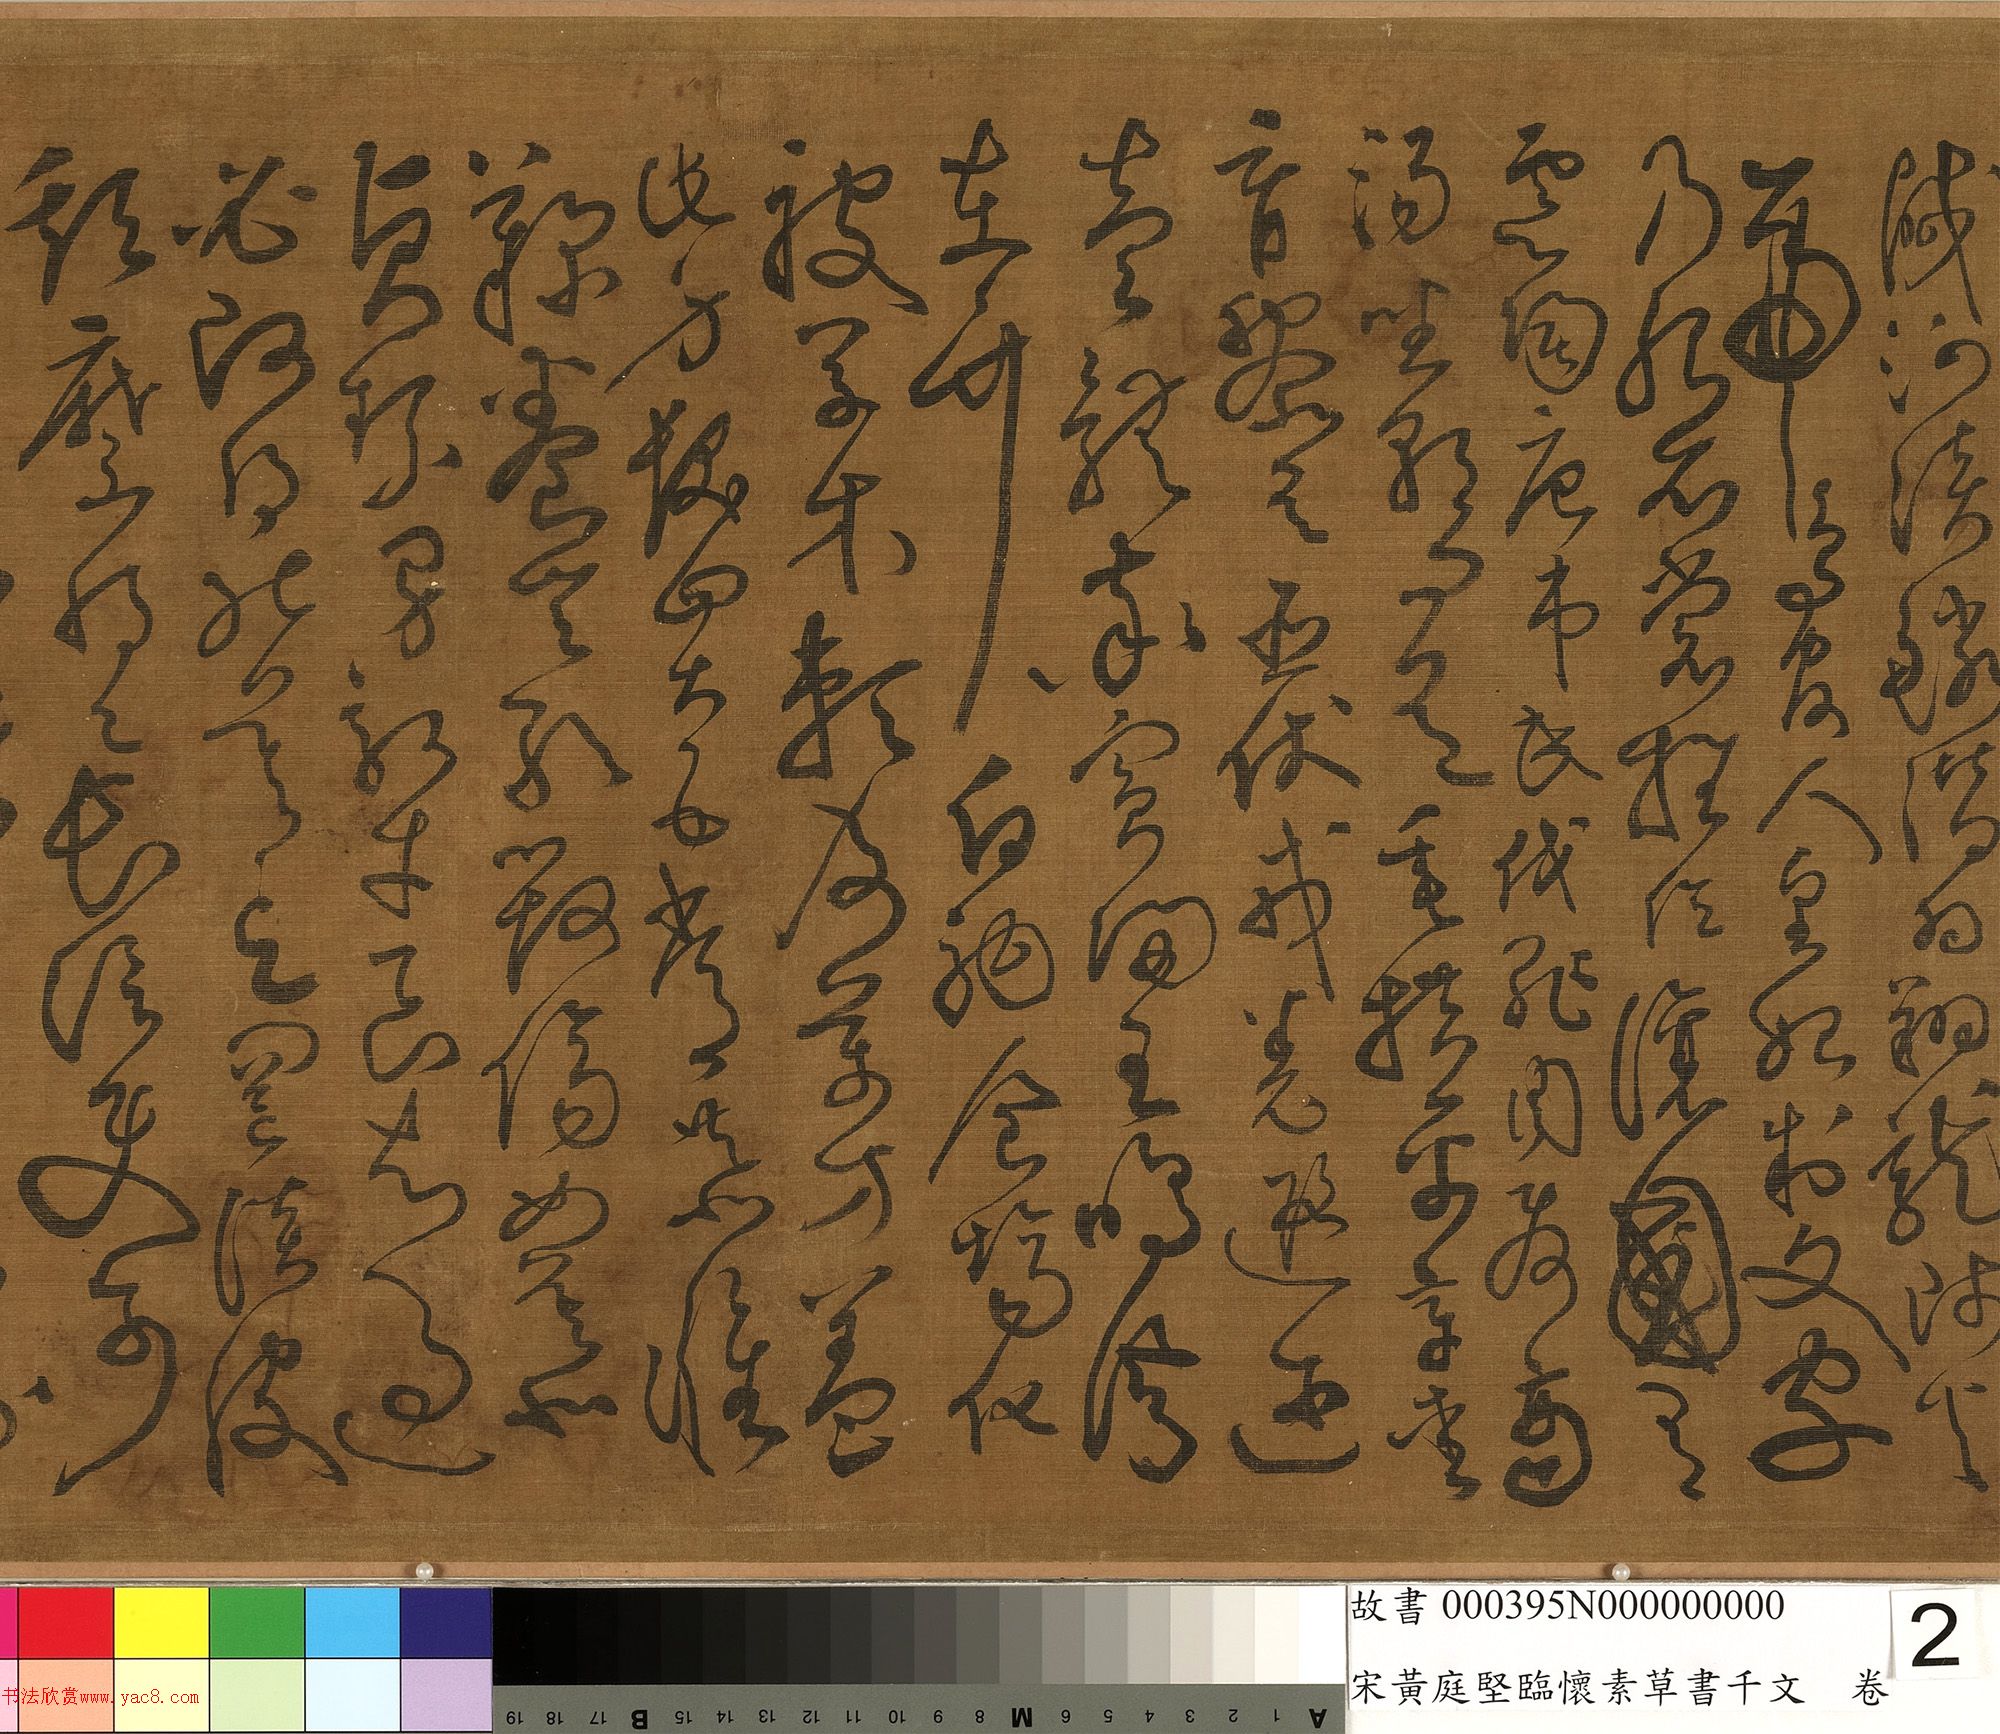 鹹河淡鱗潛羽翔龍師火
帝鳥官人皇始制文字
乃服衣裳推位讓國有
虞陶唐弔民伐罪周發商
湯坐朝問道垂拱平章愛
育黎首臣伏戎羌遐邇
壹體率賓歸王鳴鳳
在竹白駒食場化
被草木賴及萬方蓋
此身髮四大五常恭惟
鞠養豈敢毀傷女慕
貞潔男效才良知過
必改得能莫忘罔談彼
短靡恃己長信使可
故書 000395N000000000
宋黃庭堅臨懷素草書千文 卷
2
书法欣赏www.yac8.com
A 1 2 3 4 5 6 M 8 9 10 11 12 13 14 15 B 17 18 19